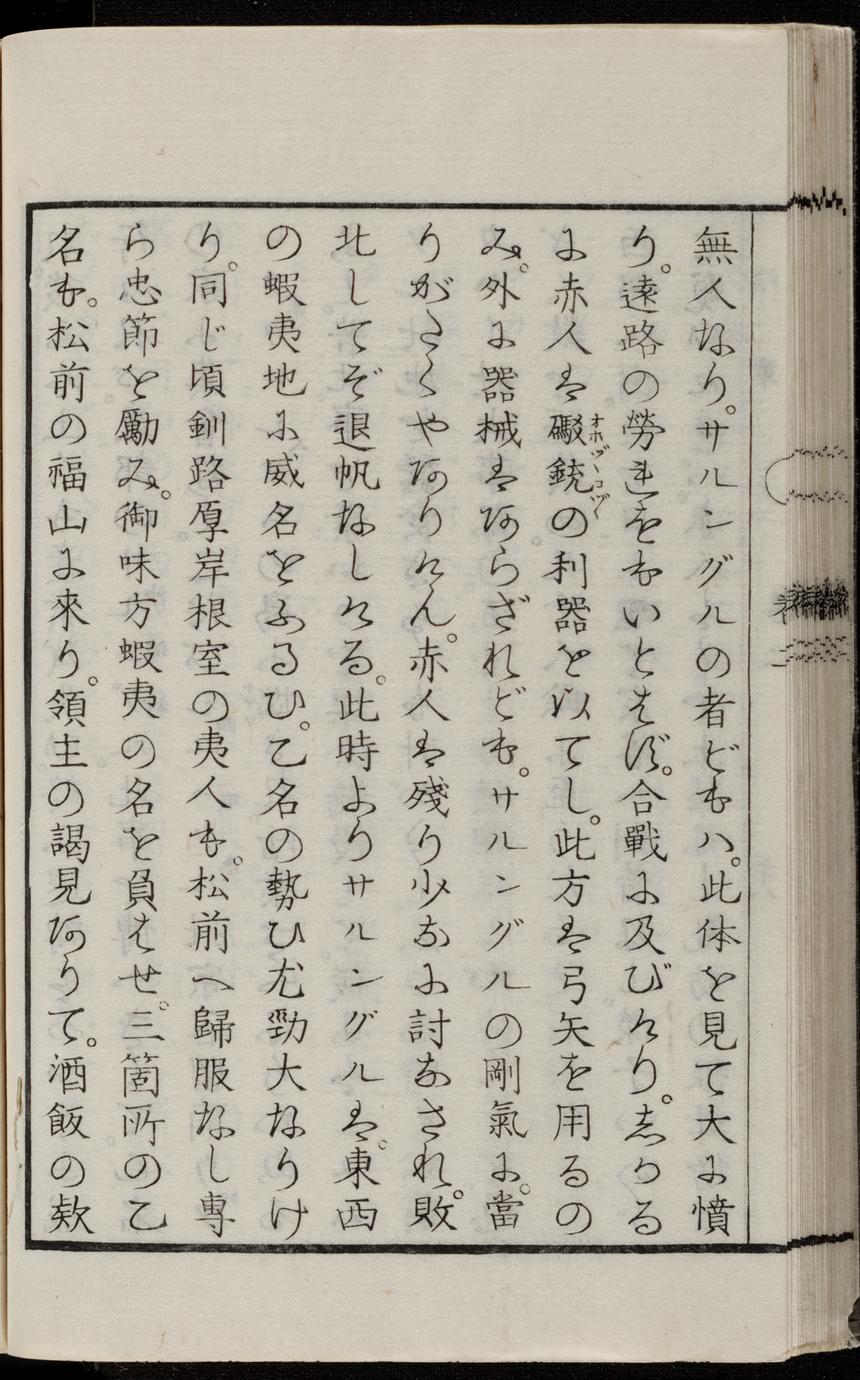 無人なり。サルングルの者どもハ。此体を見て大に憤
り。遠路の勞れをもいとはず。合戰に及びけり。しかる
に赤人は礮銃の利器を以てし。此方は弓矢を用るの
み。外に器械はあらざれども。サルングルの剛氣に。當
りがたくやありけん。赤人は殘り少なに討なされ。敗
北してぞ退帆なしける。此時よりサルングルは。東西
の蝦夷地に威名をふるひ。乙名の勢ひ尤勁大なりけ
り。同じ頃釧路厚岸根室の夷人も。松前へ歸服なし專
ら忠節を勵み。御味方蝦夷の名を負はせ。三箇所の乙
名も。松前の福山に來り。領主の謁見ありて。酒飯の欵